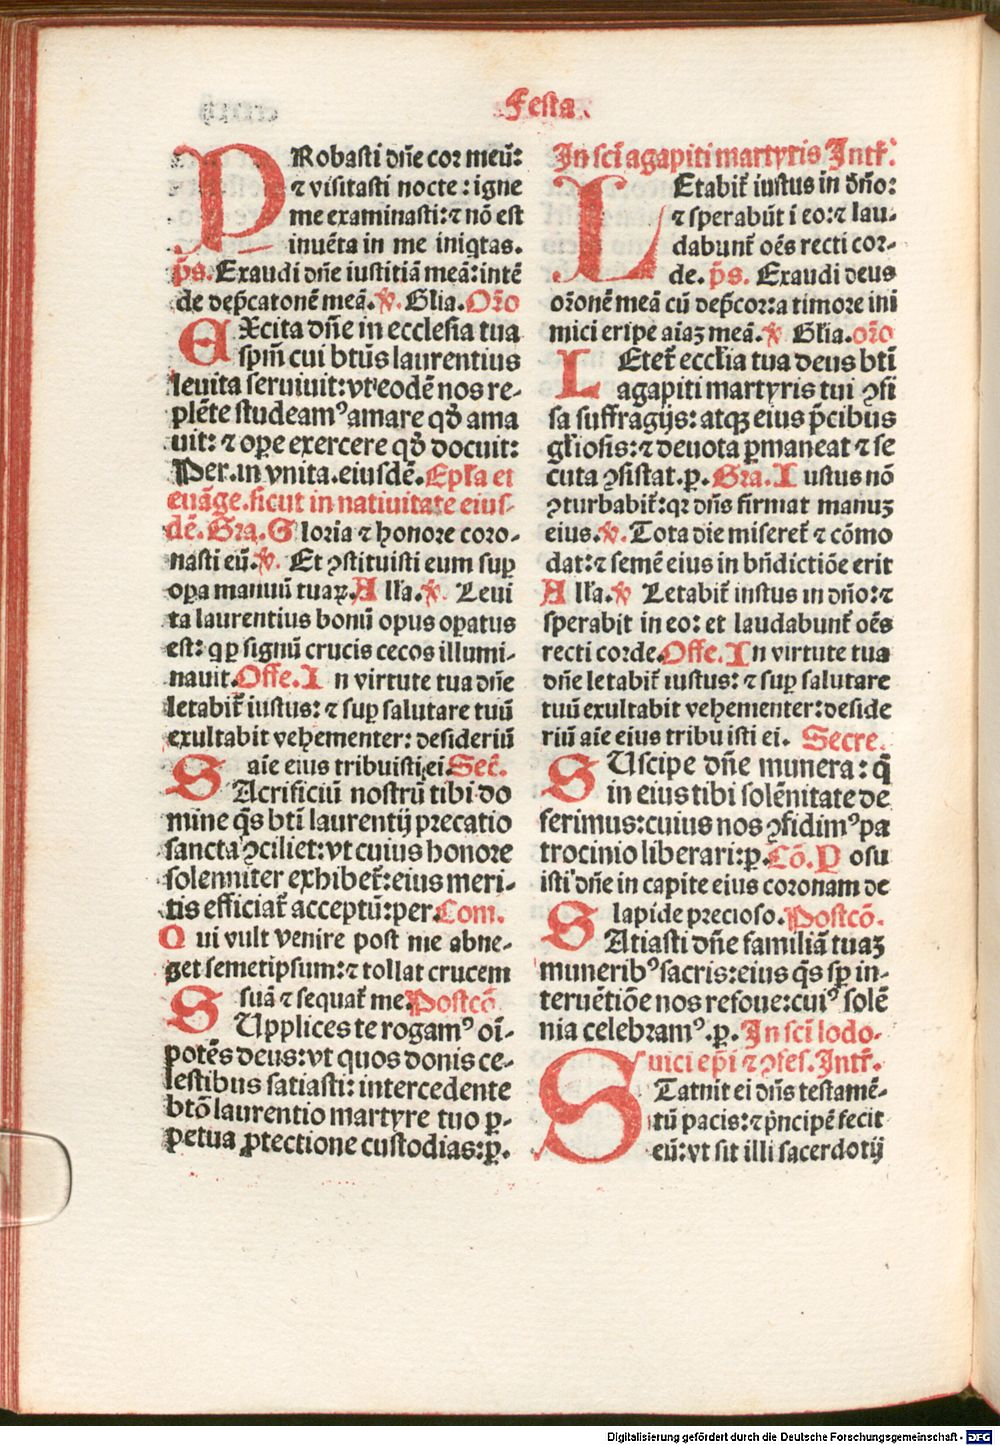 Festa
PRobasti dñe cor meũ:
⁊ visitasti nocte: igne
me examinasti: ⁊ nõ est
inuẽta in me iniq̃tas.
p̃s. Exaudi dñe iustitiã meã: intẽ
de dep̃catonẽ meã. ℣. Gľia. Or̃o
EXcita dñe in ecclesia tua
sp̃m cui btũs laurentius
leuita seruiuit: vt eodẽ nos re-
plẽte studeamꝰ amare qð ama
uit: ⁊ oꝑe exercere qð docuit:
Per. in vnita. eiusdẽ. Epľa et
euãge. sicut in natiuitate eius-
dẽ. Gra. Gloria ⁊ honore coro-
nasti eũ. ℣. Et ꝯstituisti eum suꝑ
oꝑa manuũ tuaꝝ. Alľa. ℣. Leui
ta laurentius bonũ opus oꝑatus
est: q̃ ꝑ signũ crucis cecos illumi-
nauit. Offe. In virtute tua dñe
letabit̃ iustus: ⁊ suꝑ salutare tuũ
exultabit vehementer: desideriũ
aĩe eius tribuisti ei. Sec̃.
SAcrificiũ nostrũ tibi do
mine q̃s btĩ laurentij precatio
sancta ꝯciliet: vt cuius honore
solenniter exhibet̃: eius meri-
tis efficiat̃ acceptũ: per. Com.
Qui vult venire post me abne-
get semetipsum: ⁊ tollat crucem
suã ⁊ sequat̃ me. Postcõ
SUpplices te rogamꝰ oĩ-
potẽs deus: vt quos donis ce-
lestibus satiasti: intercedente
btõ laurentio martyre tuo ꝑ-
petua ꝓtectione custodias: ꝑ.
In scĩ agapiti martyris Intr̃.
LEtabit̃ iustus in dño:
⁊ sperabũt ĩ eo: ⁊ lau-
dabunt̃ oẽs recti cor-
de. p̃s. Exaudi deus
or̃onẽ meã cũ dep̃cor: a timore ini
mici eripe aĩaꝫ meã. ℣ Gľia. or̃o
LEtet̃ eccľia tua deus btĩ
agapiti martyris tui ꝯfi
sa suffragijs: atqꝫ eius p̃cibus
gľiosis: ⁊ deuota ꝑmaneat ⁊ se
cũta ꝯsistat. ꝑ. Gra. Iustus nõ
ꝯturbabit̃: qr dñs firmat manuꝫ
eius. ℣. Tota die miseret̃ ⁊ cõmo
dat: ⁊ semẽ eius in bñdictiõe erit
Alľa. ℣ Letabit̃ iustus in dño: ⁊
sperabit in eo: et laudabunt̃ oẽs
recti corde. Offe. In virtute tua
dñe letabit̃ iustus: ⁊ suꝑ salutare
tuũ exultabit vehementer: deside
riũ aĩe eius tribuisti ei. Secre.
SUscipe dñe munera: q̃
in eius tibi solẽnitate de
ferimus: cuius nos ꝯfidimꝰ pa
trocinio liberari: ꝑ. Cõ. Posu
isti dñe in capite eius coronam de
lapide precioso. Postcõ.
SAtiasti dñe familiã tuaꝫ
muneribꝰ sacris: eius q̃s sꝑ in-
teruẽtiõe nos refoue: cuiꝰ solẽ
nia celebramꝰ. ꝑ. In scĩ lodo-
uici ep̃i ⁊ ꝯfes. Intr̃.
STatuit ei dñs testamẽ-
tũ pacis: ⁊ p̃ncipẽ fecit
eũ: vt sit illi sacerdotij
Digitalisierung gefördert durch die Deutsche Forschungsgemeinschaft - DFG